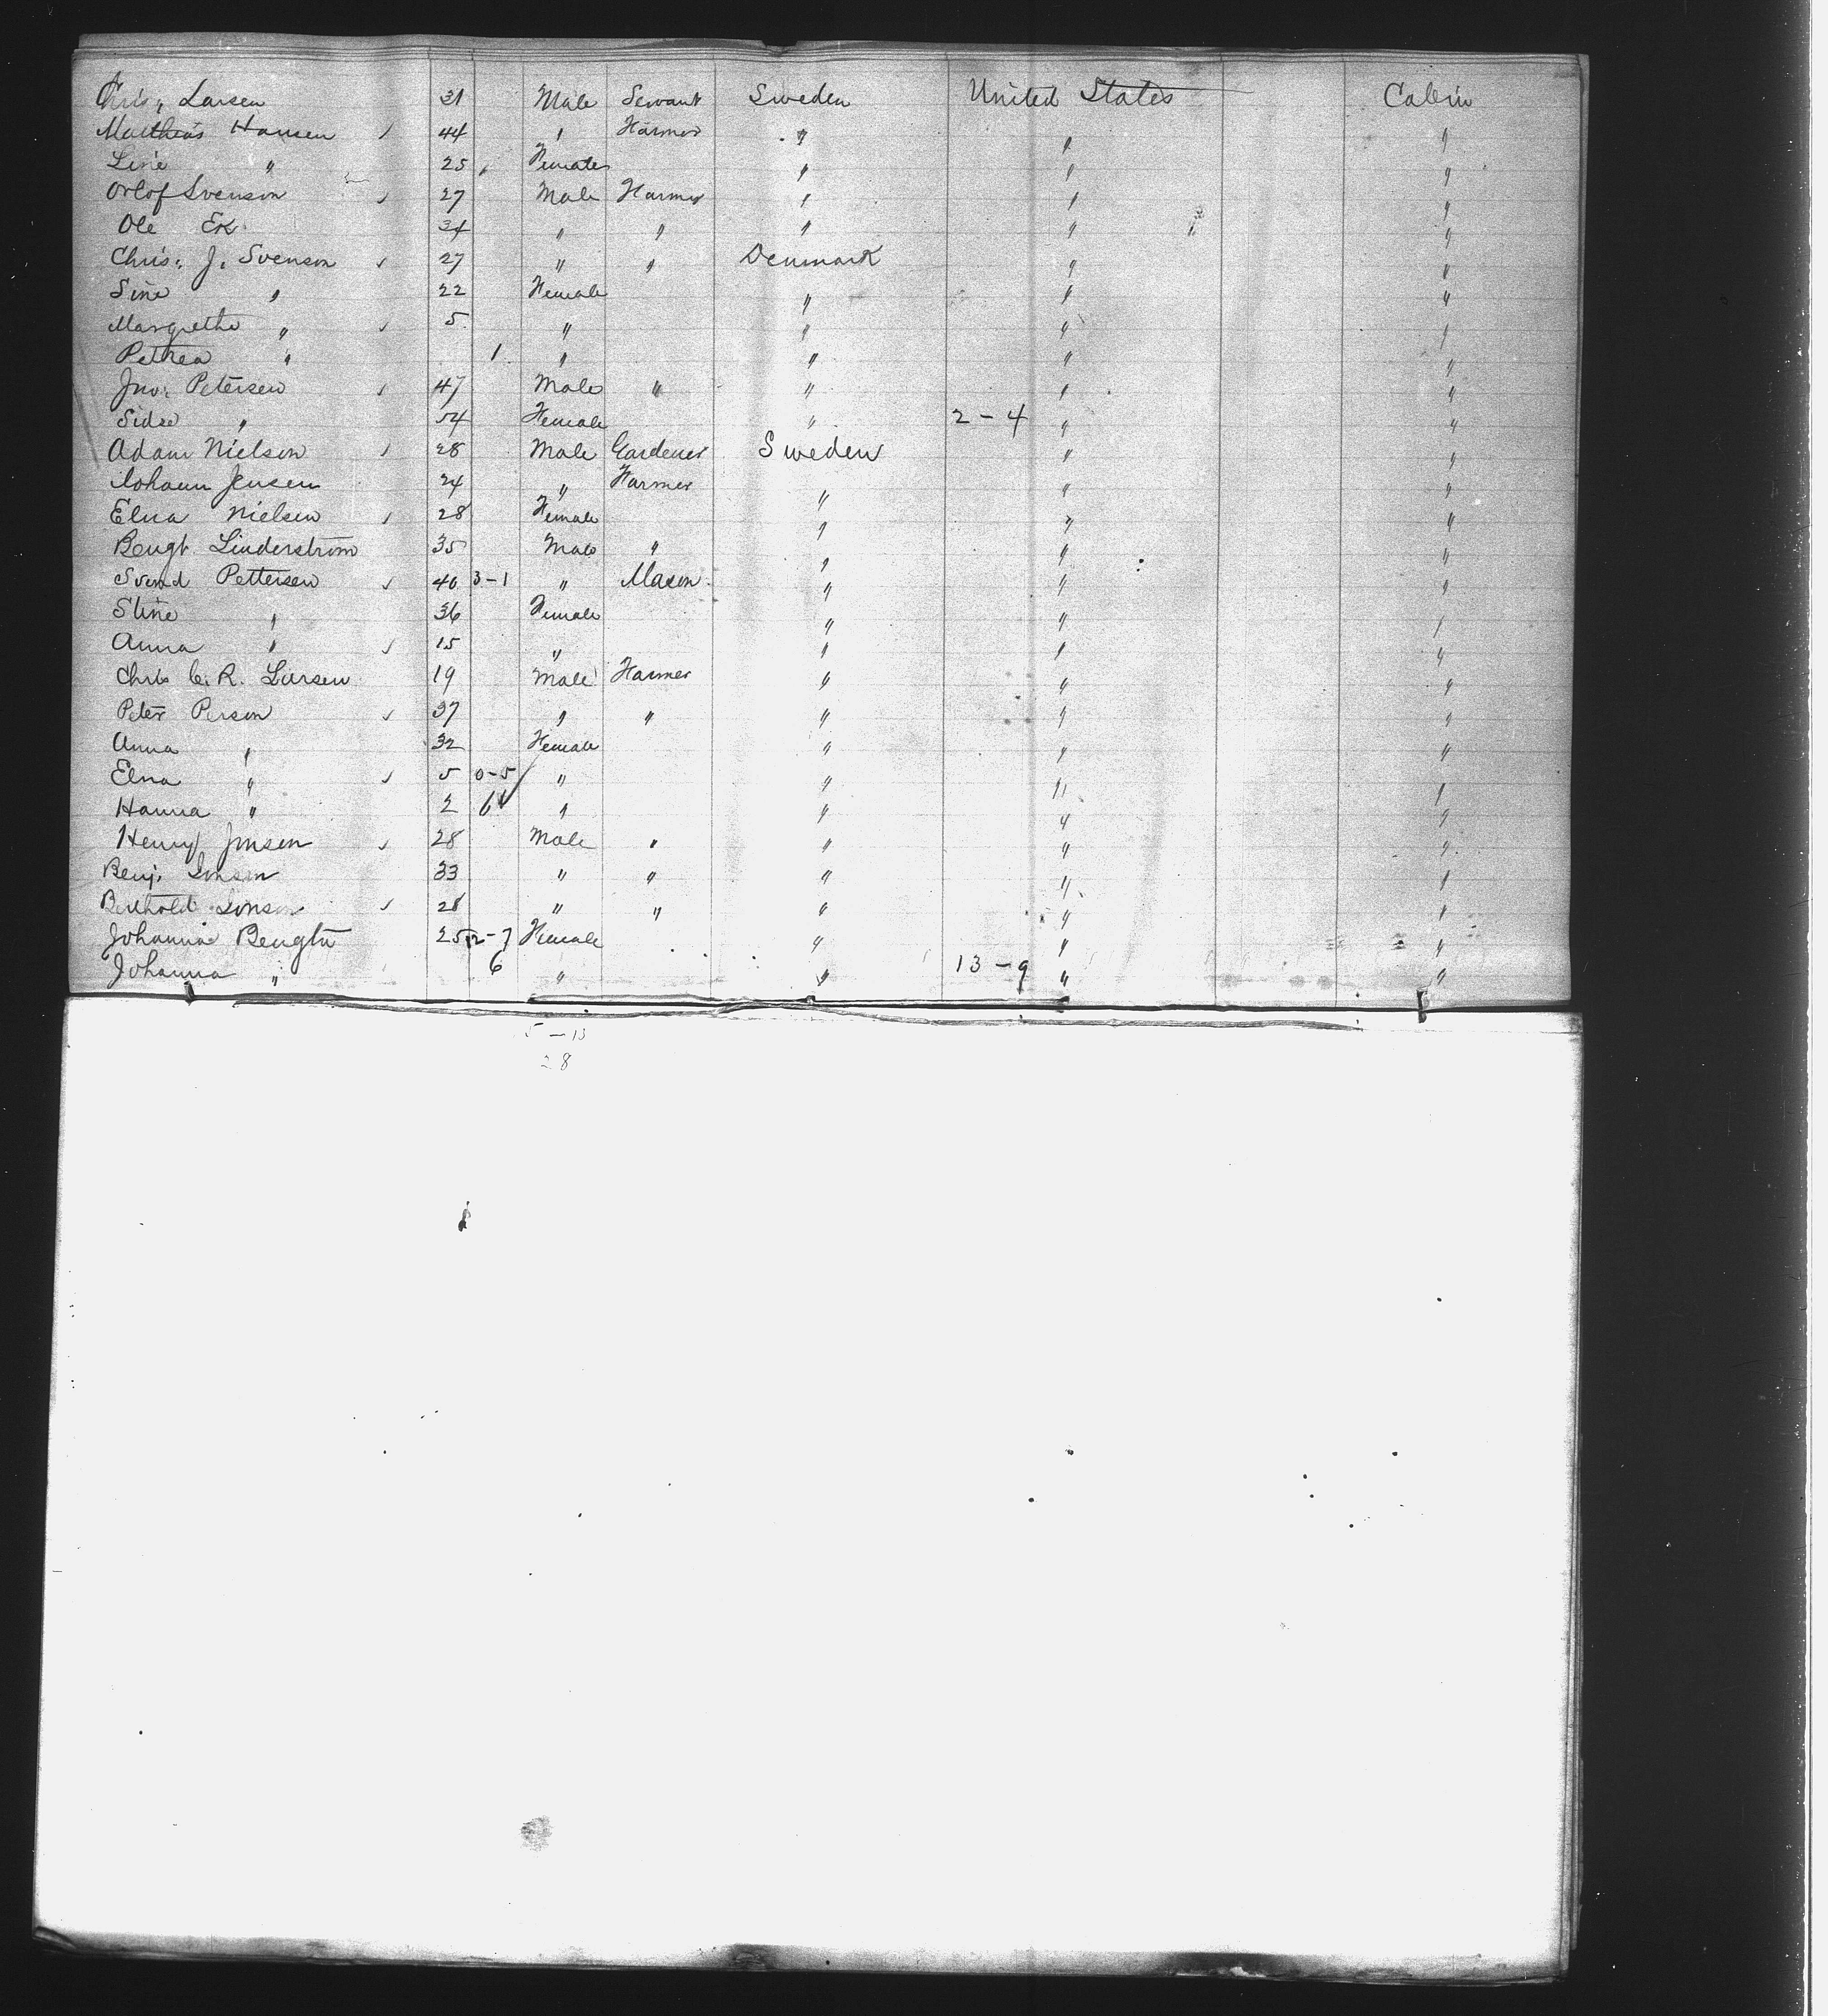 Chris, Larsen 31 Male Servant Sweden United States Cabin
Mathias Hansen 44 " Farmer " " "
Line " 25 Female " " "
Orlof Svenson 27 Male Farmer " " "
Ole Ek 34 " " " " "
Chris: J. Svenson 27 " " Denmark " "
Sine " 22 Female " " "
Margrethe " 5 " " " "
Petrea " 1 " " " "
Jno: Petersen 47 Male " " " "
Sidse " 54 Female " 2-4 " "
Adam Nielson 28 Male Gardener Sweden " "
Johann Jensen 24 " Farmer " " "
Elna Nielsen 28 Female " " "
Bengt Linderstrom 35 Male " " " "
Svend Pettersen 40 3-1 " Mason " " "
Stine " 36 Female " " "
Anna " 15 " " " "
Chris C. R. Larsen 19 Male Farmer " " "
Peter Person 37 " " " " "
Anna " 32 Female " " "
Elna " 5 0-5 " " " "
Hanna " 2 6 " " " "
Henry Jensen 28 Male " " " "
Benj. Jonsen 33 " " " " "
Berthold Jonson 28 " " " " "
Johanna Bengta 25 2-7 Female " " "
Johanna " 6 " " 13-9 " "
5-13
28